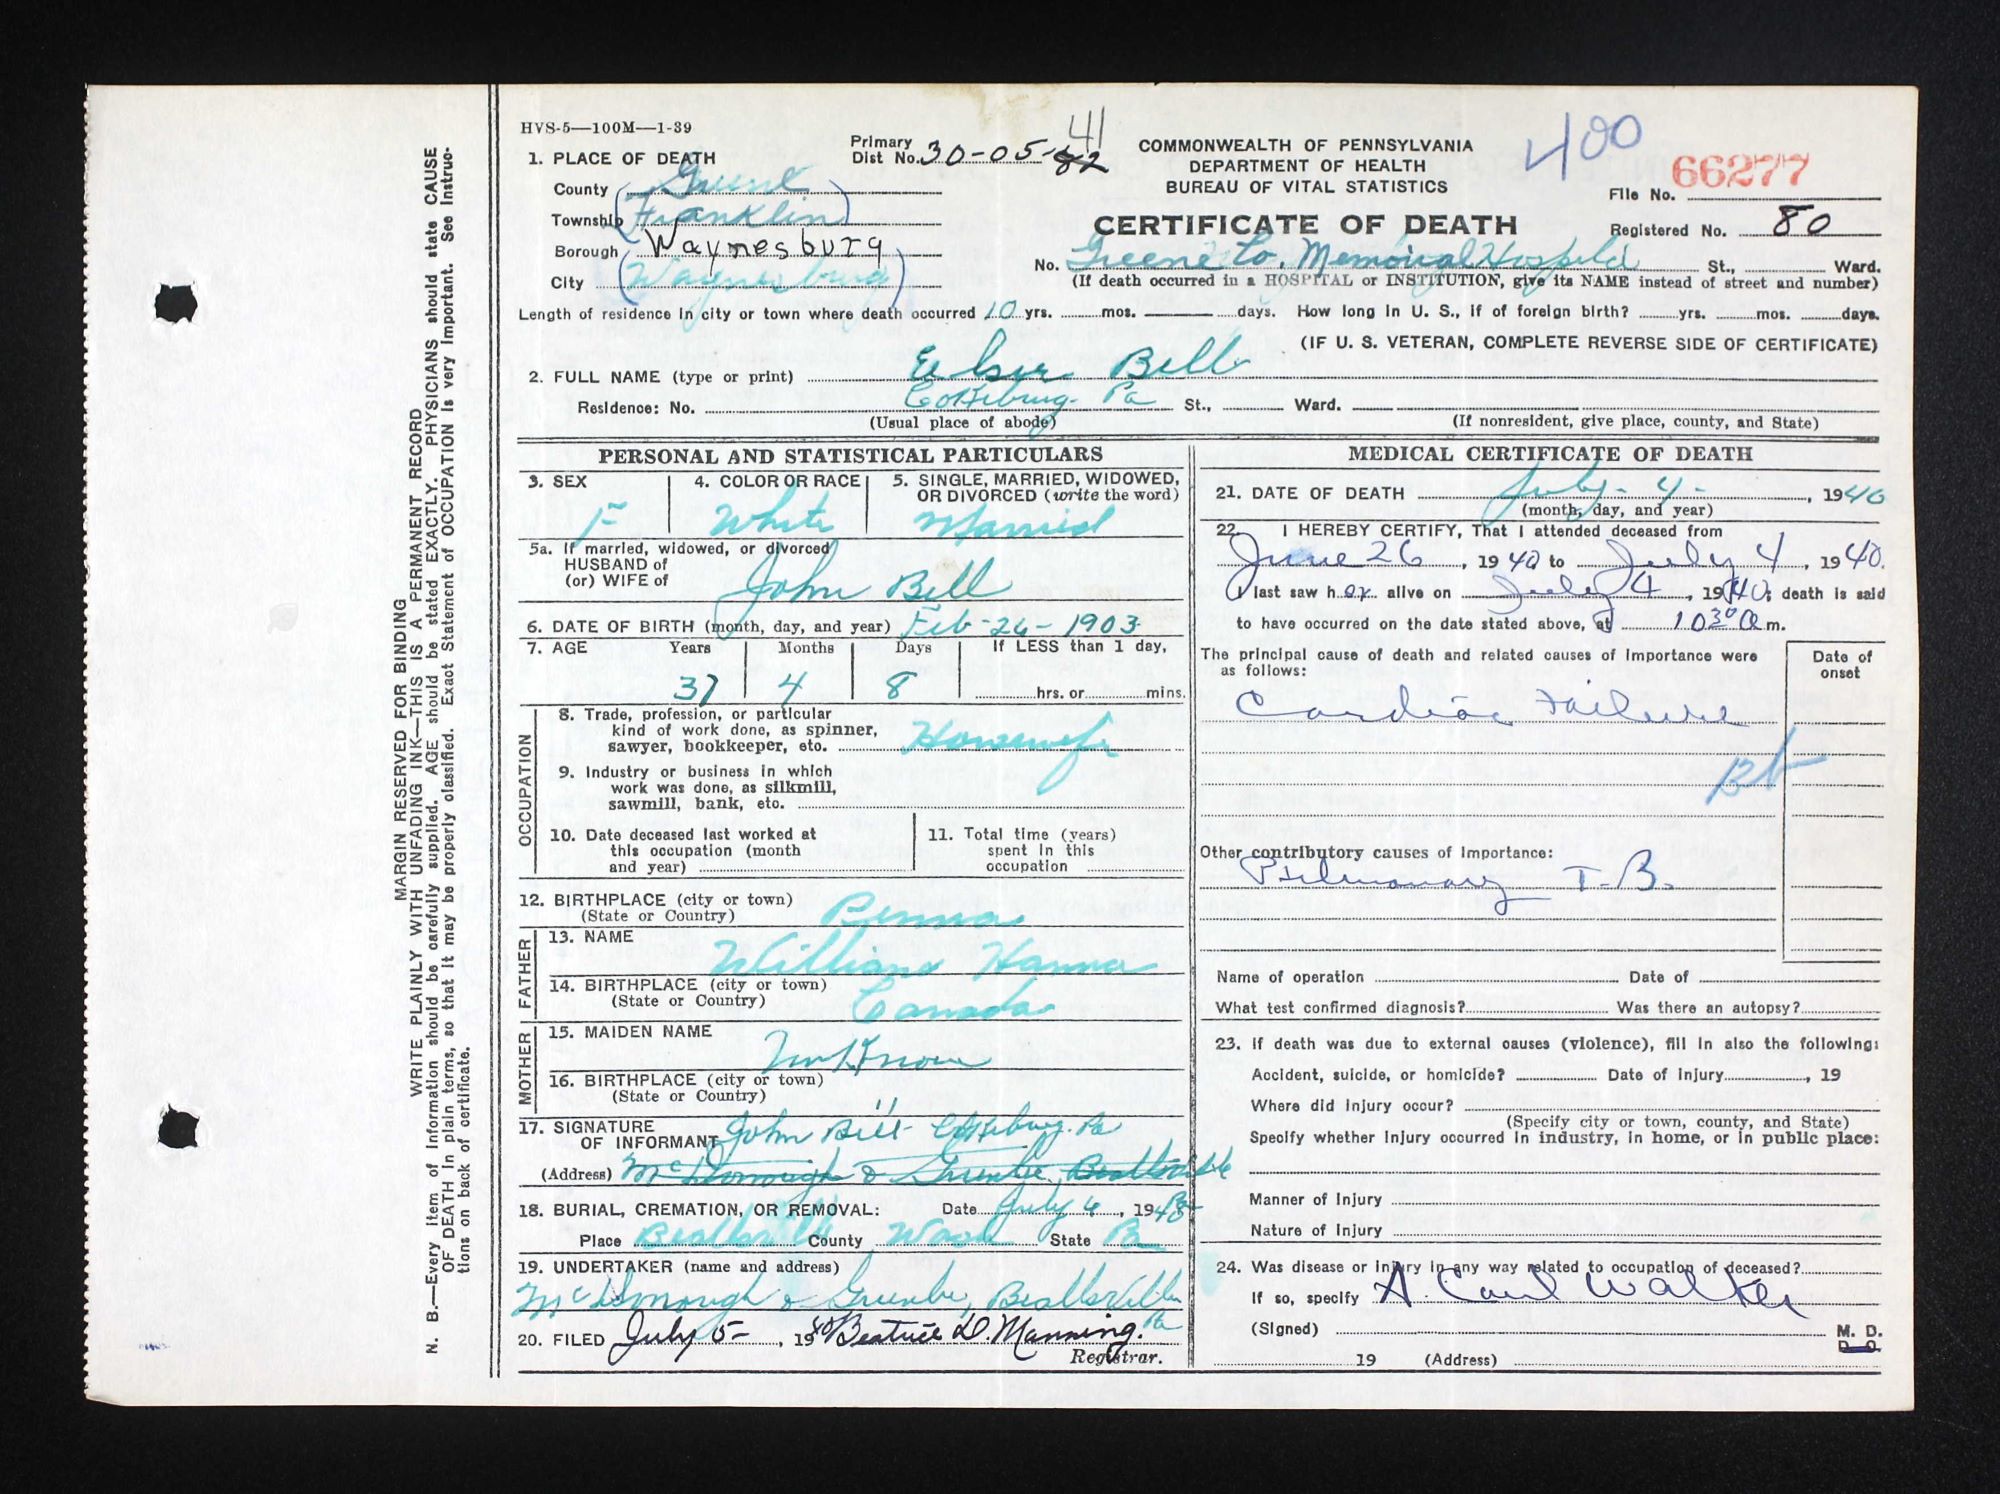 HVS-5—100M—1-39
1. PLACE OF DEATH
County Greene
Township Franklin
Borough Waynesburg
City Waynesburg
Primary Dist No. 30-05-82 41
COMMONWEALTH OF PENNSYLVANIA
DEPARTMENT OF HEALTH
BUREAU OF VITAL STATISTICS
CERTIFICATE OF DEATH
400
File No. 66277
Registered No. 80
No. Greene Co. Memorial Hospital St., Ward.
(If death occurred in a HOSPITAL or INSTITUTION, give its NAME instead of street and number)
Length of residence in city or town where death occurred 10 yrs. mos. days. How long in U. S., if of foreign birth? yrs. mos. days.
(IF U. S. VETERAN, COMPLETE REVERSE SIDE OF CERTIFICATE)
2. FULL NAME (type or print) Bell
Residence: No. Pa St., Ward.
(Usual place of abode) (If nonresident, give place, county, and State)
PERSONAL AND STATISTICAL PARTICULARS
3. SEX F
4. COLOR OR RACE White
5. SINGLE, MARRIED, WIDOWED, OR DIVORCED (write the word) Married
5a. If married, widowed, or divorced
HUSBAND of
(or) WIFE of John Bell
6. DATE OF BIRTH (month, day, and year) Feb-26-1903
7. AGE Years Months Days If LESS than 1 day,
37 4 8 hrs. or mins.
OCCUPATION
8. Trade, profession, or particular
kind of work done, as spinner,
sawyer, bookkeeper, etc. Housewife
9. Industry or business in which
work was done, as silkmill,
sawmill, bank, etc.
10. Date deceased last worked at
this occupation (month
and year)
11. Total time (years)
spent in this
occupation
12. BIRTHPLACE (city or town)
(State or Country) Penna
FATHER
13. NAME William Hanna
14. BIRTHPLACE (city or town)
(State or Country) Canada
MOTHER
15. MAIDEN NAME
16. BIRTHPLACE (city or town)
(State or Country)
17. SIGNATURE
OF INFORMANT John Bell Pa
(Address) McDonough & Beallsville
18. BURIAL, CREMATION, OR REMOVAL: Date July 6, 1940
Place Beallsville County Wash State Pa
19. UNDERTAKER (name and address)
McDonough & Beallsville Pa
20. FILED July 5-, 1940 Beatrice D. Manning.
Registrar.
MEDICAL CERTIFICATE OF DEATH
21. DATE OF DEATH July-4-, 1940
(month, day, and year)
22. I HEREBY CERTIFY, That I attended deceased from
June 26, 1940 to July 4, 1940.
I last saw her alive on July 4, 1940; death is said
to have occurred on the date stated above, at 10 30 a m.
The principal cause of death and related causes of importance were
as follows:
Date of
onset
Cardiac Failure
Other contributory causes of importance:
Pulmonary T.B.
Name of operation Date of
What test confirmed diagnosis? Was there an autopsy?
23. If death was due to external causes (violence), fill in also the following:
Accident, suicide, or homicide? Date of injury, 19
Where did injury occur?
(Specify city or town, county, and State)
Specify whether injury occurred in industry, in home, or in public place:
Manner of injury
Nature of injury
24. Was disease or injury in any way related to occupation of deceased?
If so, specify A. Carl Walker
(Signed) M. D.
D. O.
19 (Address)
MARGIN RESERVED FOR BINDING
WRITE PLAINLY WITH UNFADING INK—THIS IS A PERMANENT RECORD
N. B.—Every item of information should be carefully supplied. AGE should be stated EXACTLY. PHYSICIANS should state CAUSE
OF DEATH in plain terms, so that it may be properly classified. Exact Statement of OCCUPATION is very important. See instruc-
tions on back of certificate.